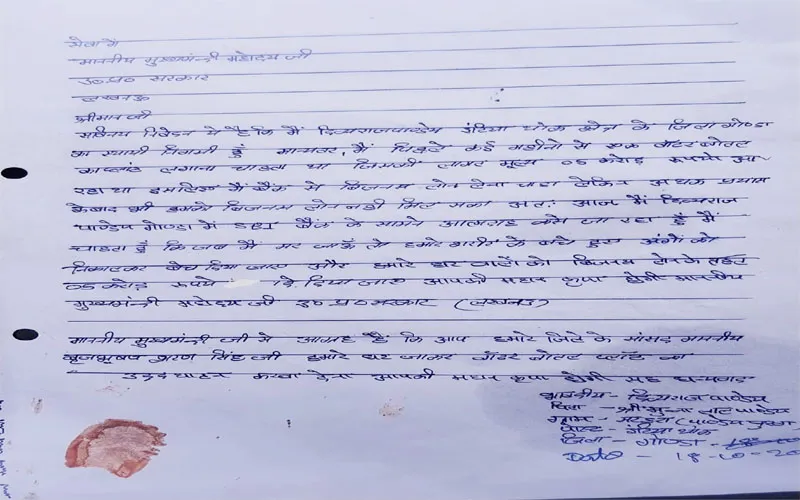 सेवा में
माननीय मुख्यमन्त्री महोदय जी
उ०प्र० सरकार
लखनऊ
श्रीमान जी
सविनय निवेदन ये है कि मैं दिव्यराज पाण्डेय इटिया थोक क्षेत्र के जिला गोण्डा
का स्थायी निवासी हूँ मान्यवर, मैं पिछले कई महीनो से एक वॉटर बोतल
का प्लांट लगाना चाहता था जिसकी लागत मूल्य 05 करोड़ रूपये आ
रहा था इसलिए मैं बैंक से बिजनस लोन लेना चाहा लेकिन अथक प्रयास
के बाद भी हमको बिजनस लोन नही मिल सका अतः आज मैं दिव्यराज
पाण्डेय गोण्डा में SBI बैंक के सामने आत्मदाह करने जा रहा हूँ मैं
चाहता हूँ कि जब मैं मर जाऊँ तो हमारे शरीर के बचे हुए अंगो को
निकालकर बेच दिया जाए और हमारे घर वालों को बिजनस लोन के तहत
05 करोड़ रूपये दे दिया जाए आपकी महान कृपा होगी माननीय
मुख्यमन्त्री महोदय जी उ०प्र० सरकार (लखनऊ)
माननीय मुख्यमन्त्री जी से आग्रह है कि आप हमारे जिले के सांसद माननीय
बृजभूषण शरण सिंह जी हमारे घर जाकर वॉटर बोतल प्लांट का
उद्दघाटन करवा देना आपकी महान कृपा होगी धन्यवाद
दिव्यराज पाण्डेय
पिता - श्री मुन्ना लाल पाण्डेय
ग्राम - (पाण्डेय पुरवा)
पोस्ट - इटिया थोक
जिला - गोण्डा
Date - 18-10-20